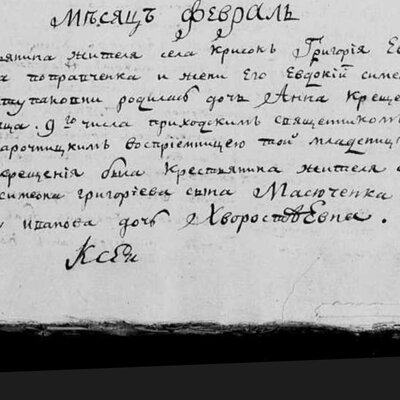 Мѣсяцъ февраль
янина жителя села Крисокъ Григорія Ев
а поправченка и жени Его Евдокіи симе
тутаковни родилась дочь Анна Креще
ца. 9го числа приходскимъ священникомъ
арочицкимъ воспріемницею той младениц
крещенія била Крестьянина жителя с
симеона григоріева сына Масюченка
иванова дочь Хворостовевна.
Ксен